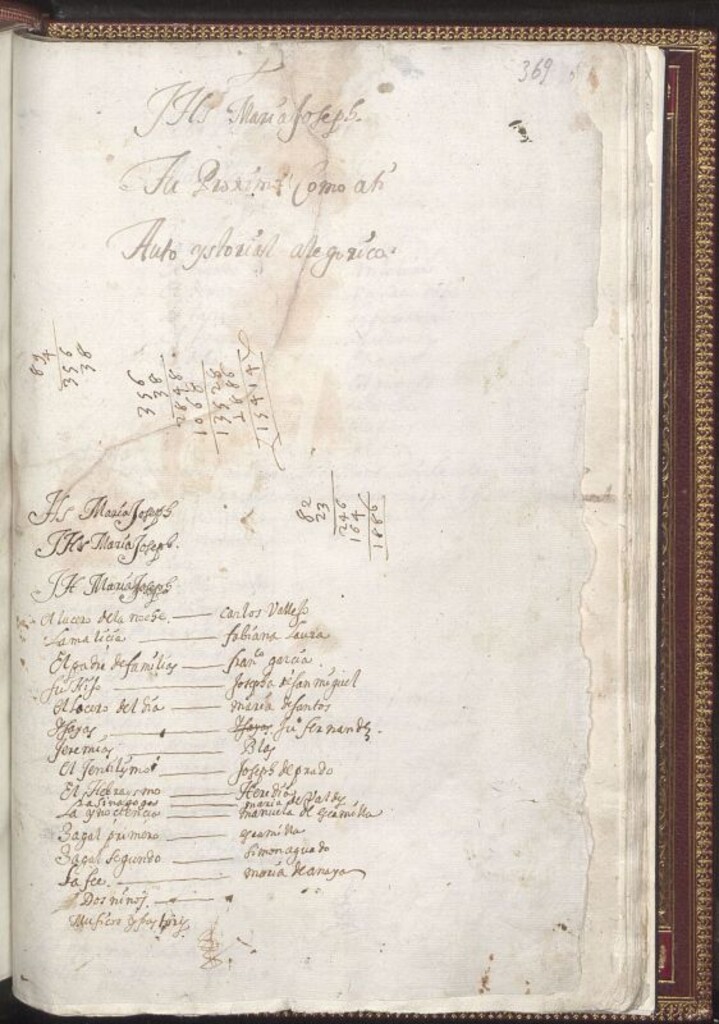 369
JHs María Joseph.
Tu Proximo Como a ti
Auto ystorial alegorica.
82
4
356
38
356
38
2848
1068
13528
1886
15414
82
23
246
164
1886
JHs María Joseph
JHs María Joseph.
JH María Joseph
el lucero de la noche. — Carlos Vallejo
La malicia — fabiana Laura
El padre de familias — franco garcia.
su Hijo — Josepha de san miguel
el lucero del dia — maria de santos
Ysayas — Ju fernandez.
Jeremias — Blas
El Jentilismo — Joseph de prado
El Hebraismo — Heredia
La sinagoga — maria de Valdes
La ynocencia — manuela de escamilla
Zagal primero — escamilla
Zagal segundo — simon aguado
La fee. — maria de anaya
Dos niños. —
Musicos y